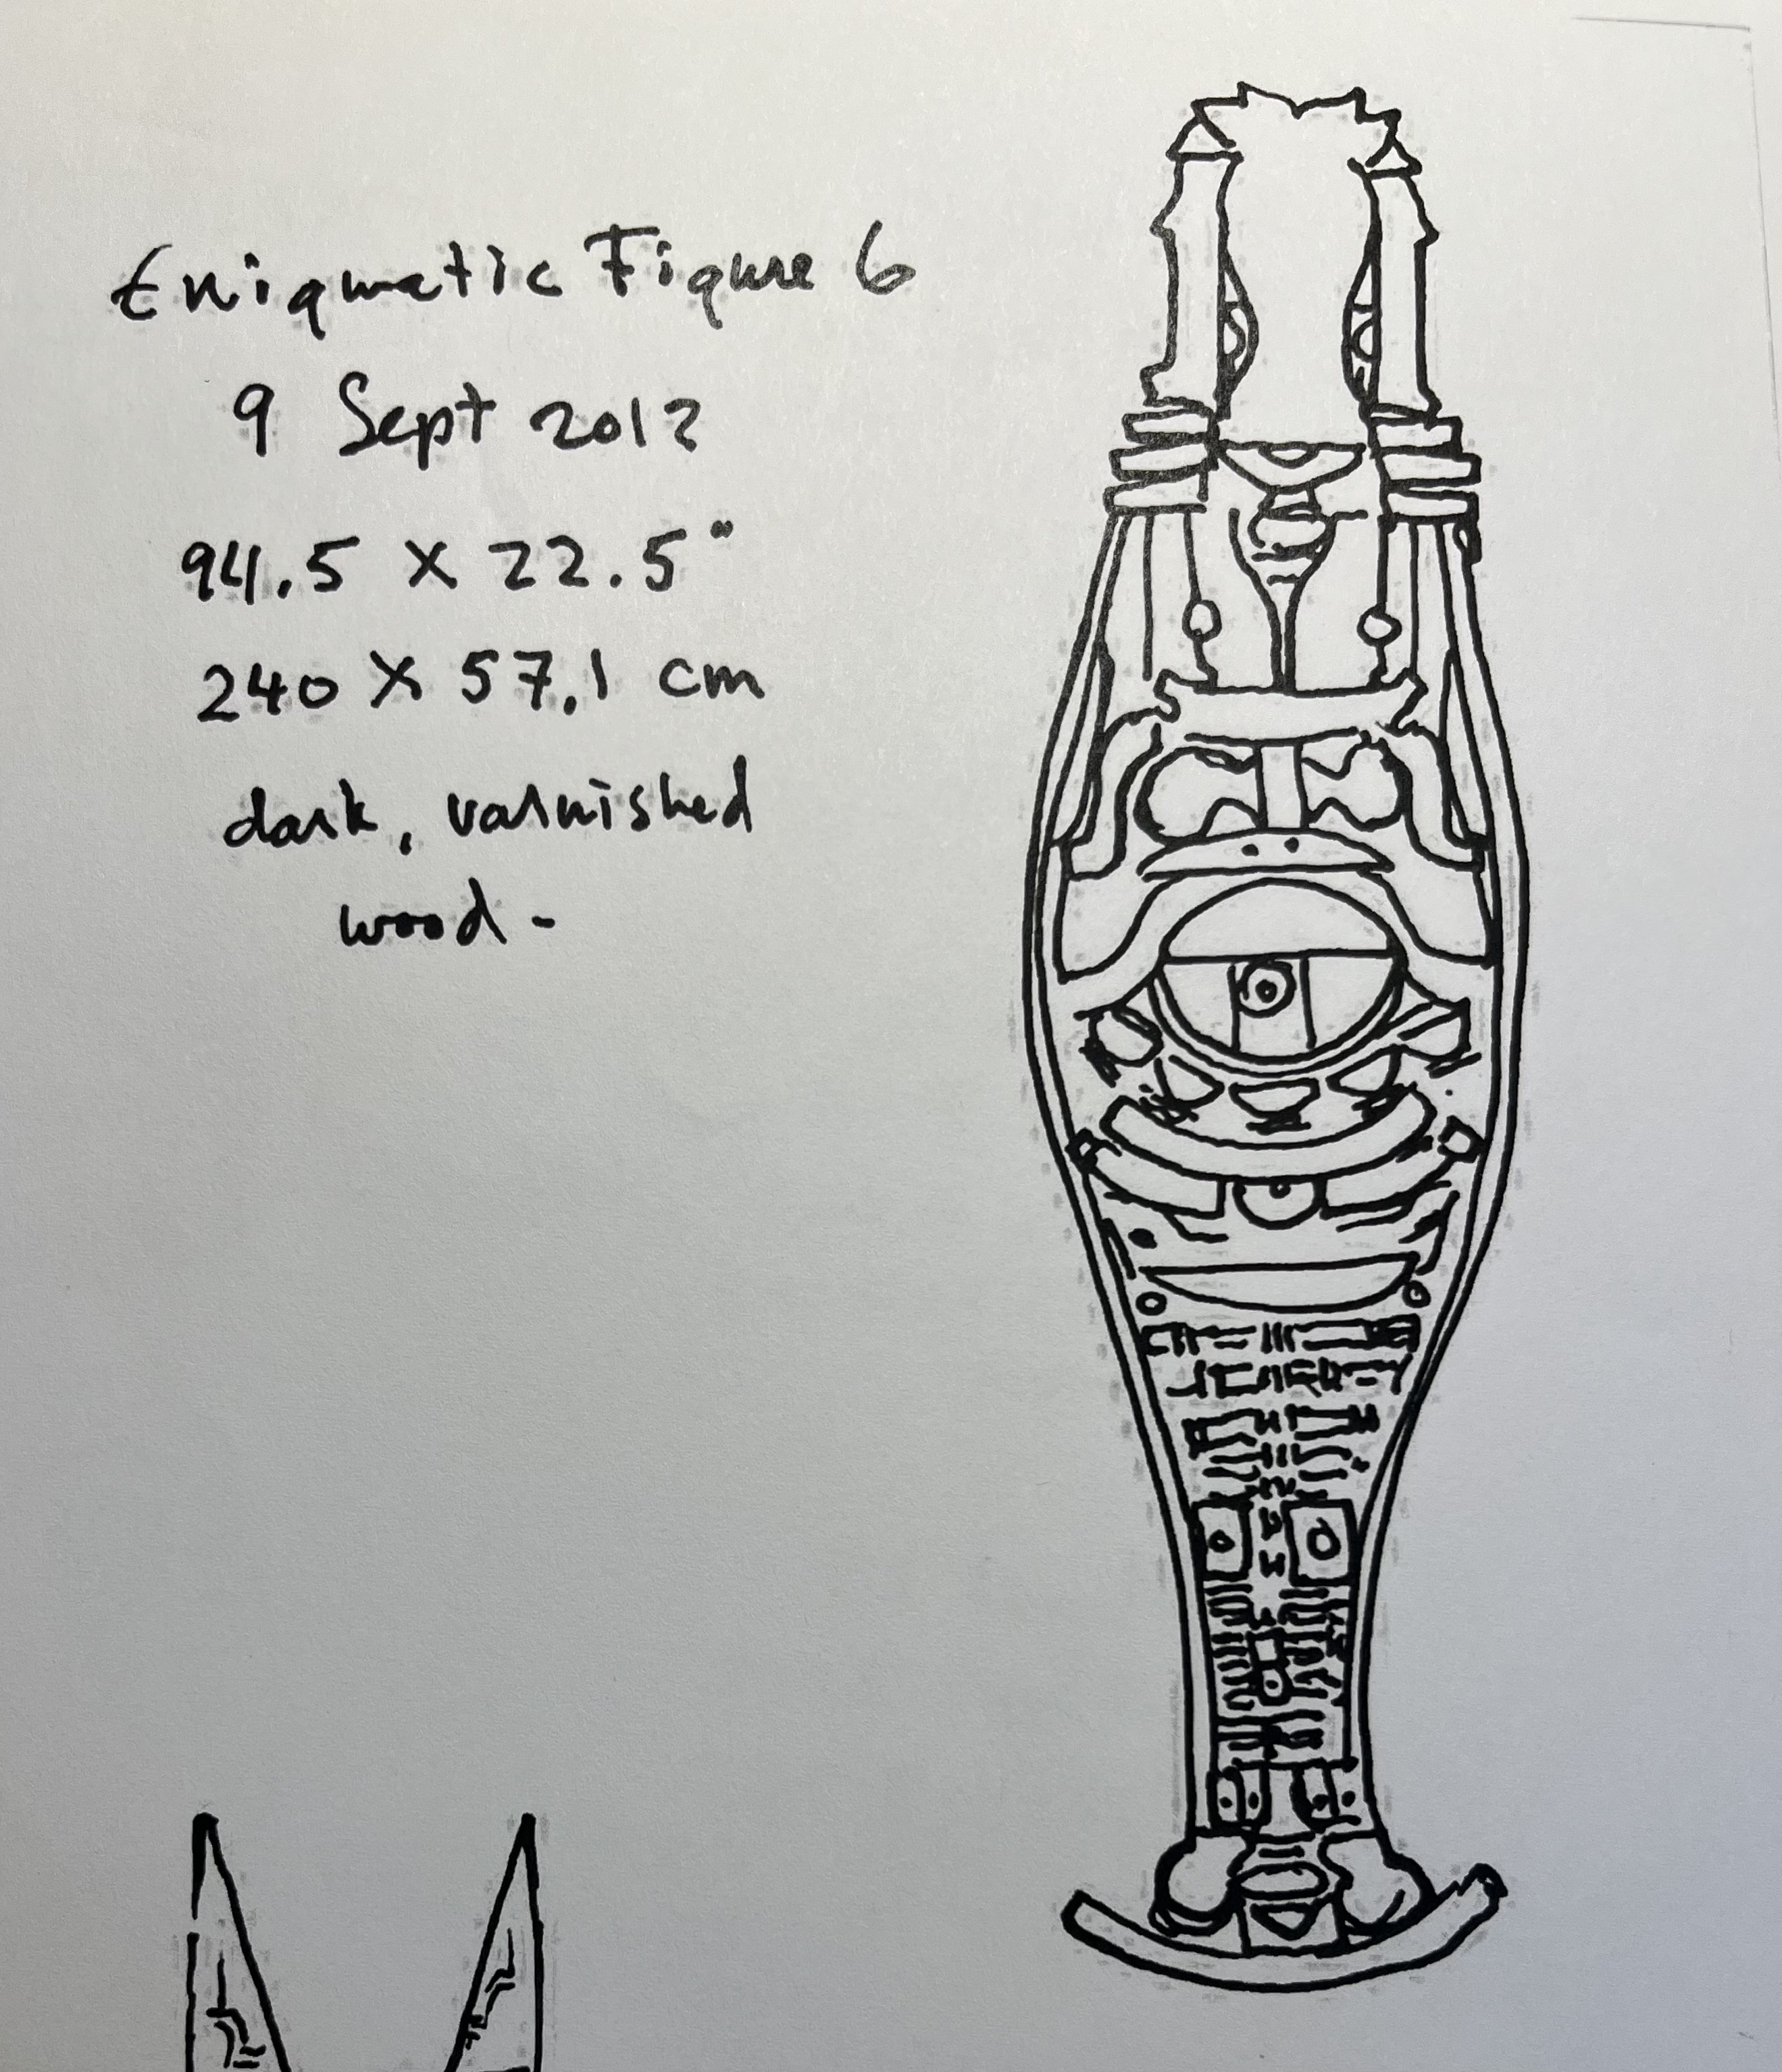 Enigmatic Figure 6
9 Sept 2012
94.5 x 22.5"
240 x 57.1 cm
dark, varnished
wood -